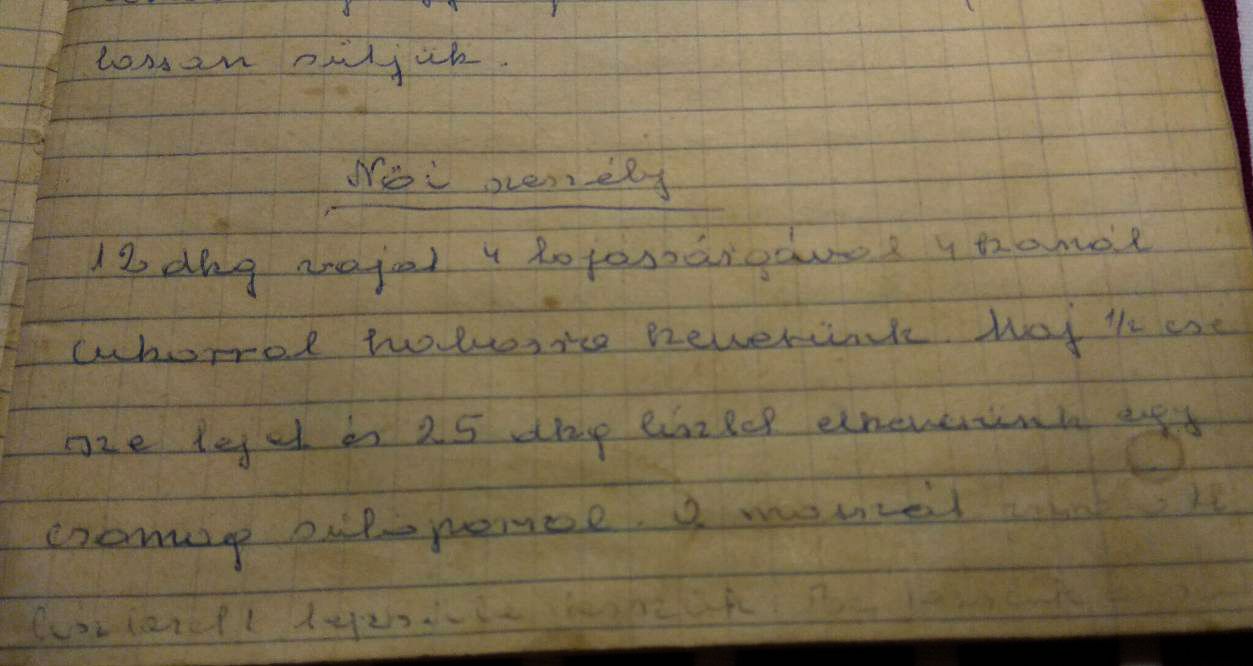 lassan sütjük.
Női szeszély
12 dkg vajat 4 tojássárgával 4 kanál
cukorral habosra keverünk. Maj ½ csé
sze tejet és 25 dkg liszttel elkeverünk egy
csomag sütőporral. A masszát
lisztezett tepsibe tesszük.